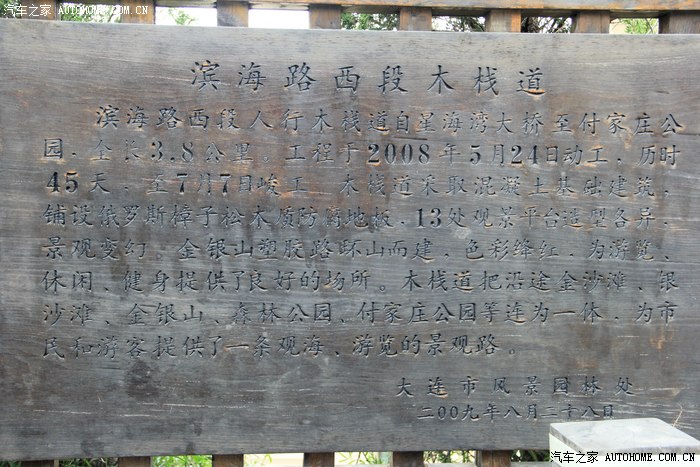 汽车之家 AUTOHOME.COM.CN
滨海路西段木栈道
滨海路西段人行木栈道自星海湾大桥至付家庄公
园，全长3.8公里。工程于2008年5月24日动工，历时
45天，至7月7日峻工。木栈道采取混凝土基础建筑，
铺设俄罗斯樟子松木质防腐地板，13处观景平台造型各异，
景观变幻。金银山塑胶路环山而建，色彩绛红，为游览、
休闲、健身提供了良好的场所。木栈道把沿途金沙滩、银
沙滩、金银山、森林公园、付家庄公园等连为一体，为市
民和游客提供了一条观海、游览的景观路。
大连市风景园林处
二00九年八月二十八日
汽车之家 AUTOHOME.COM.CN